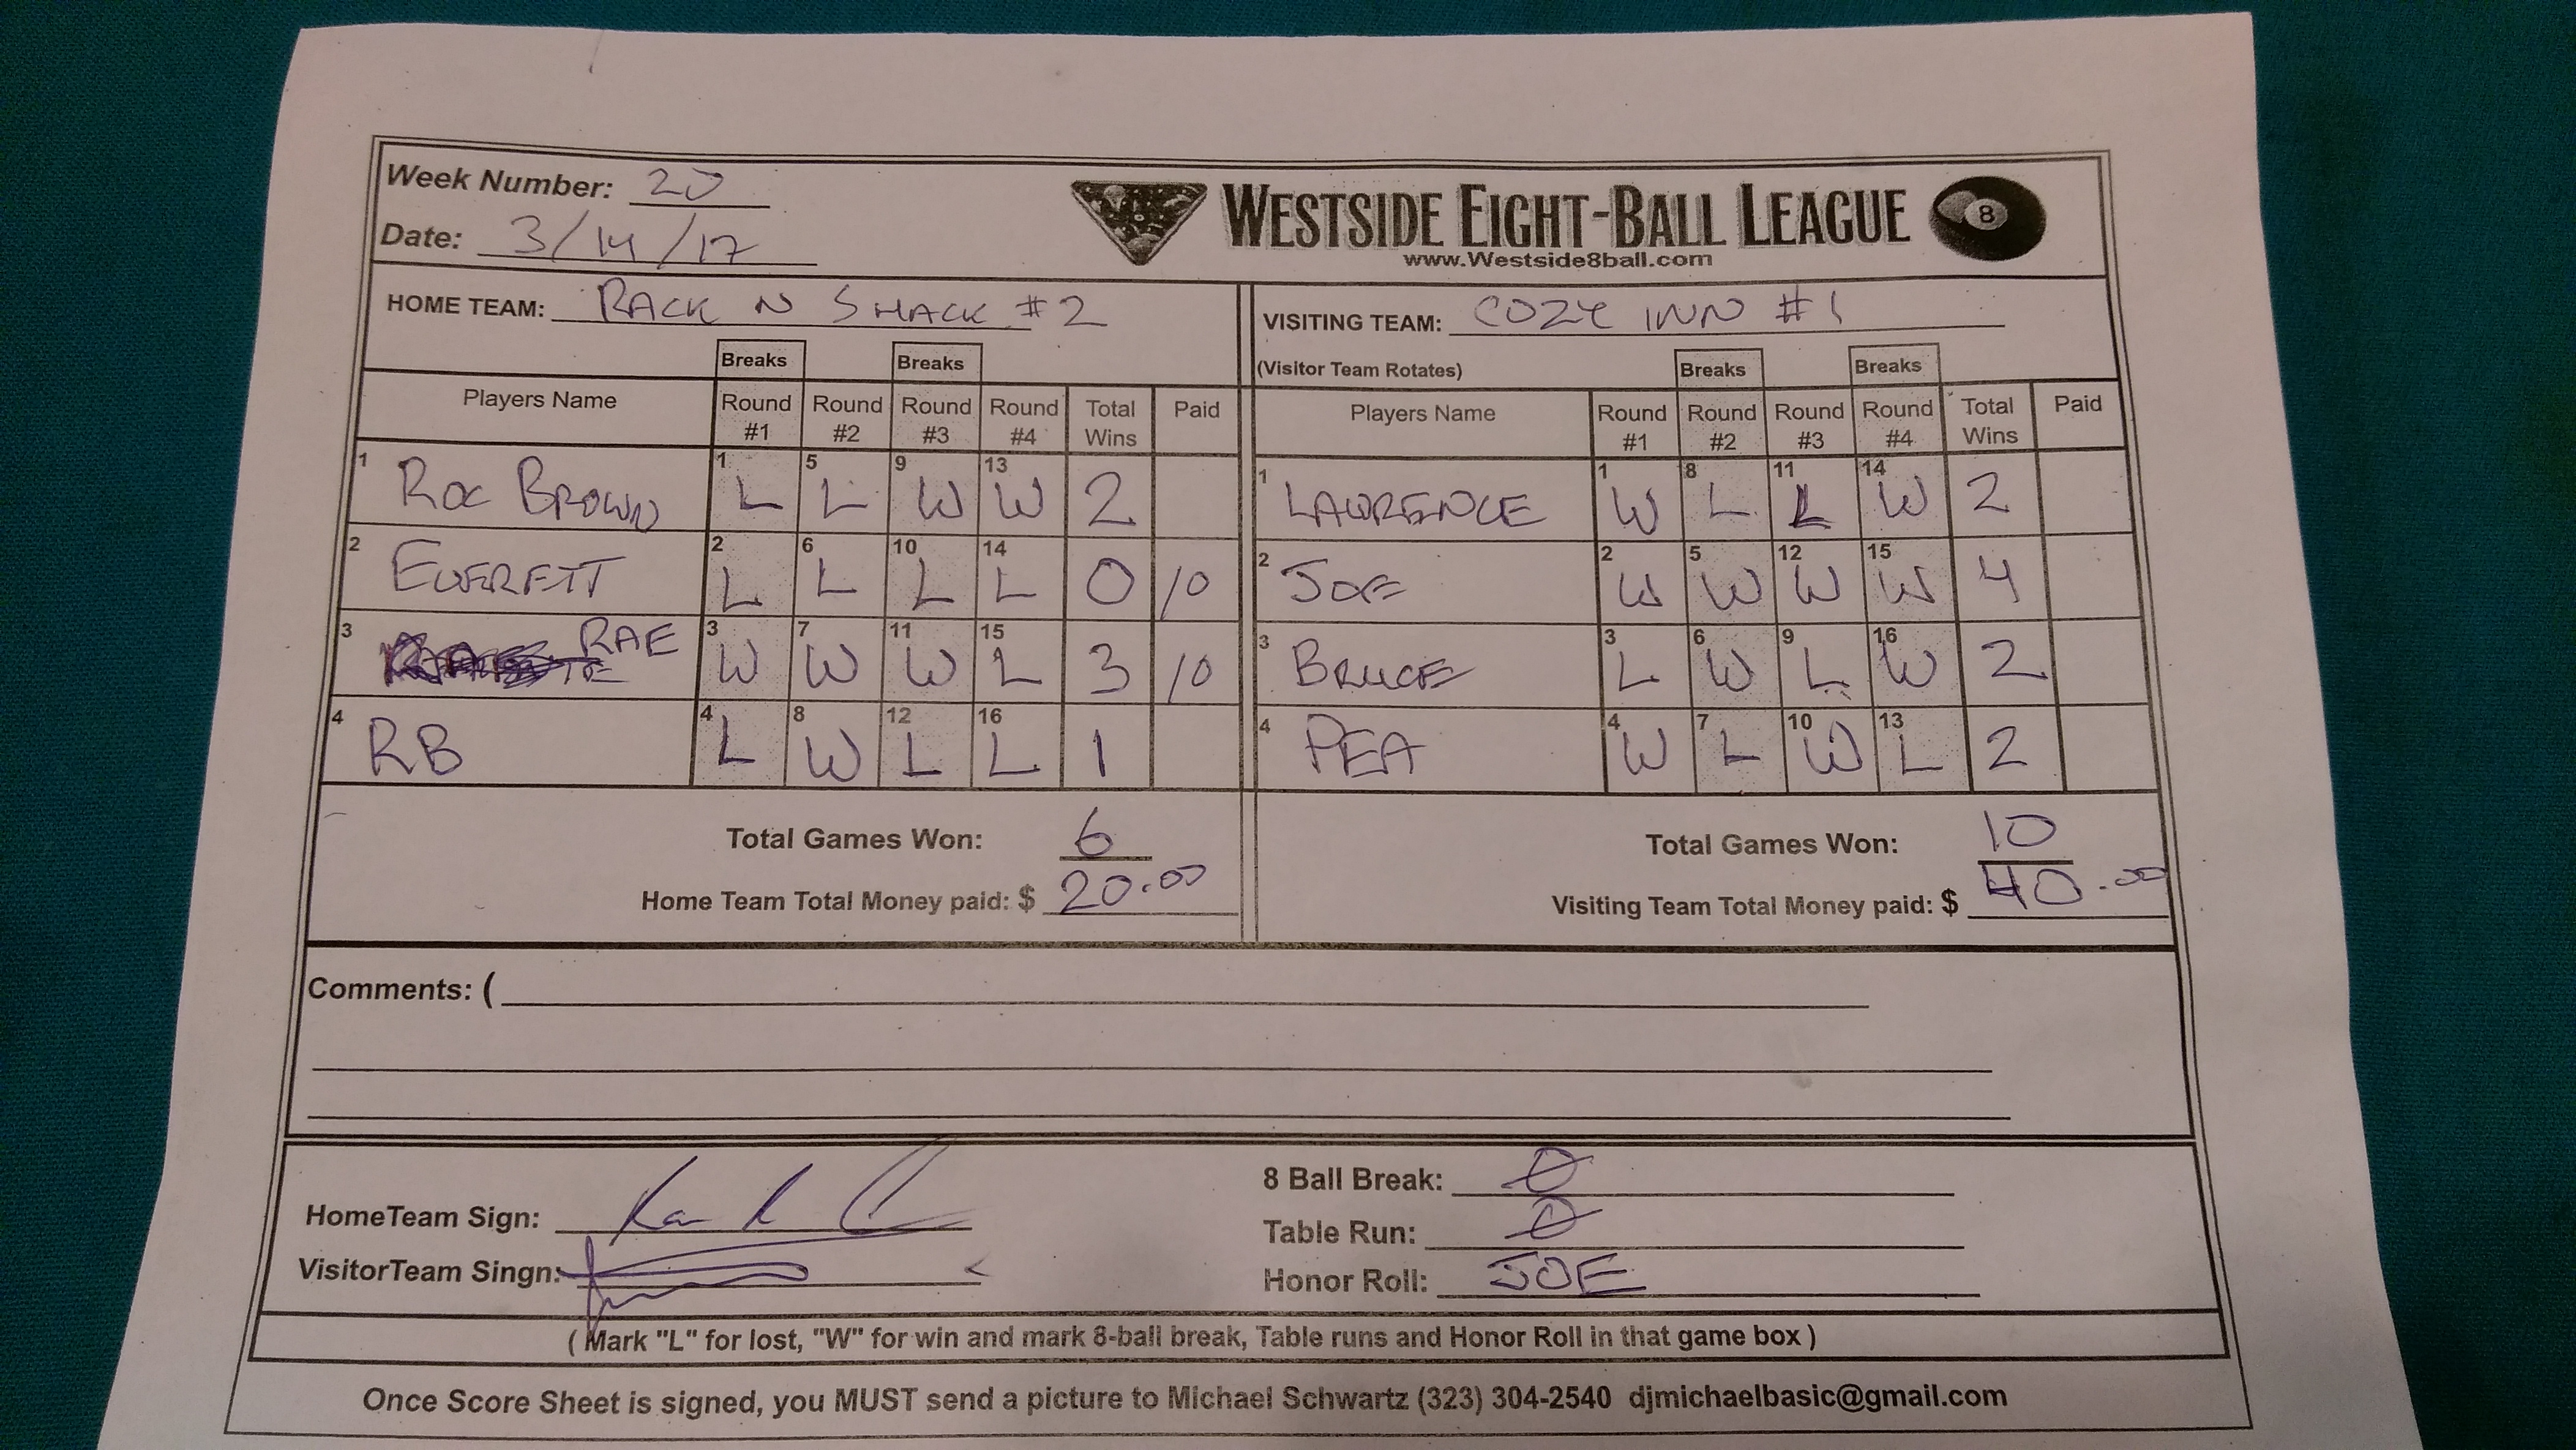 Week Number: 20
Date: 3/14/17
WESTSIDE EIGHT-BALL LEAGUE 8
www.Westside8ball.com
HOME TEAM: RACK N SHACK #2
VISITING TEAM: COZY INN #1
Breaks Breaks
(Visitor Team Rotates) Breaks Breaks
Players Name Round #1 Round #2 Round #3 Round #4 Total Wins Paid
Players Name Round #1 Round #2 Round #3 Round #4 Total Wins Paid
1 ROC BROWN 1 L 5 L 9 W 13 W 2
1 LAWRENCE 1 W 8 L 11 L 14 W 2
2 EVERETT 2 L 6 L 10 L 14 L 0 10
2 JOE 2 W 5 W 12 W 15 W 4
3 RAE 3 W 7 W 11 W 15 L 3 10
3 BRUCE 3 L 6 W 9 L 16 W 2
4 RB 4 L 8 W 12 L 16 L 1
4 PEA 4 W 7 L 10 W 13 L 2
Total Games Won: 6
Total Games Won: 10
Home Team Total Money paid: $ 20.00
Visiting Team Total Money paid: $ 40.00
Comments: (
HomeTeam Sign:
VisitorTeam Singn:
8 Ball Break: 0
Table Run: 0
Honor Roll: JOE
( Mark "L" for lost, "W" for win and mark 8-ball break, Table runs and Honor Roll in that game box )
Once Score Sheet is signed, you MUST send a picture to Michael Schwartz (323) 304-2540 djmichaelbasic@gmail.com